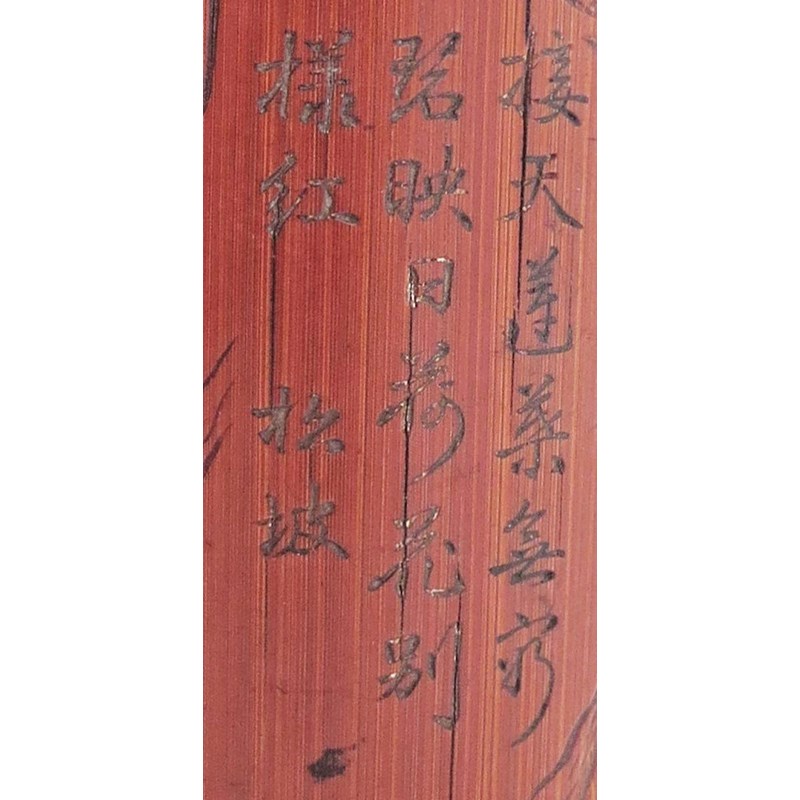 接天蓮葉無窮
碧映日荷花別
樣紅 松坡